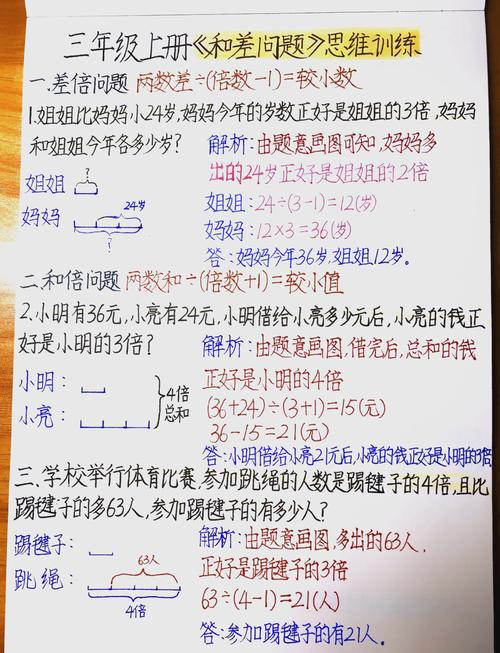 三年级上册《和差问题》思维训练
一.差倍问题 两数差÷(倍数-1)=较小数
1.姐姐比妈妈小24岁,妈妈今年的岁数正好是姐姐的3倍,妈妈
和姐姐今年各多少岁?
解析:由题意画图可知,妈妈多
出的24岁正好是姐姐的2倍
姐姐
?
妈妈
24岁
?
姐姐:24÷(3-1)=12(岁)
妈妈:12×3=36(岁)
答:妈妈今年36岁.姐姐12岁。
二.和倍问题 两数和÷(倍数+1)=较小值
2.小明有36元,小亮有24元,小明借给小亮多少元后,小亮的钱正
好是小明的3倍?
解析:由题意画图,借完后,总和的钱
正好是小明的4倍
小明:
小亮:
4倍
总和
(36+24)÷(3+1)=15(元)
36-15=21(元)
答:小明借给小亮21元后,小亮的钱正好是小明的3倍
三.学校举行体育比赛.参加跳绳的人数是踢毽子的4倍,且比
踢毽子的多63人,参加踢毽子的有多少人?
踢毽子:
跳绳:
63人
4倍
解析:由题意画图,多出的63人,
正好是踢毽子的3倍
63÷(4-1)=21(人)
答:参加踢毽子的有21人.